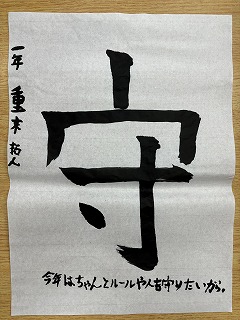 守
一年 重末 拓人
今年はちゃんとルールや人を守りたいから。